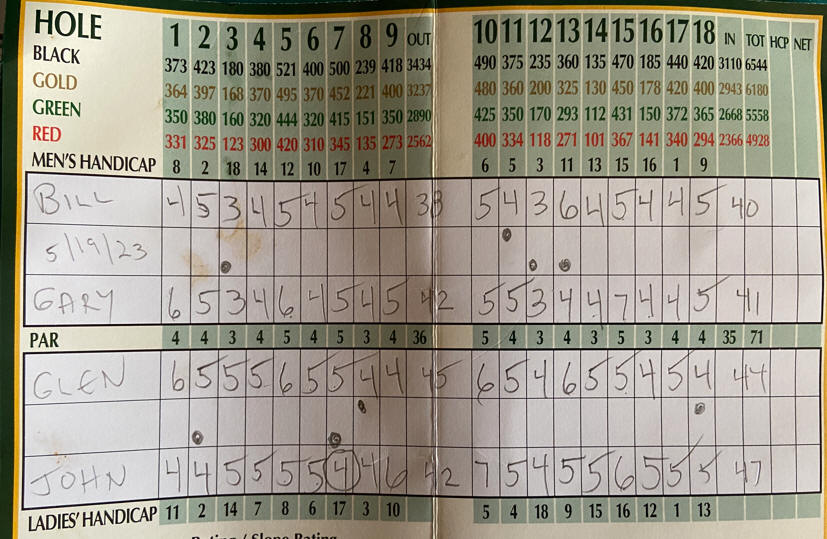 HOLE 1 2 3 4 5 6 7 8 9 OUT 10 11 12 13 14 15 16 17 18 IN TOT HCP NET
BLACK 373 423 180 380 521 400 500 239 418 3434 490 375 235 360 135 470 185 440 420 3110 6544
GOLD 364 397 168 370 495 370 452 221 400 3237 480 360 200 325 130 450 178 420 400 2943 6180
GREEN 350 380 160 320 444 320 415 151 350 2890 425 350 170 293 112 431 150 372 365 2668 5558
RED 331 325 123 300 420 310 345 135 273 2562 400 334 118 271 101 367 141 340 294 2366 4928
MEN'S HANDICAP 8 2 18 14 12 10 17 4 7 6 5 3 11 13 15 16 1 9
BILL 4 5 3 4 5 4 5 4 4 38 5 4 3 6 4 5 4 4 5 40
5/19/23
GARY 6 5 3 4 6 4 5 4 5 42 5 5 3 4 4 7 4 4 5 41
PAR 4 4 3 4 5 4 5 3 4 36 5 4 3 4 3 5 3 4 4 35 71
GLEN 6 5 5 5 6 5 5 4 4 45 6 5 4 6 5 5 4 5 4 44
JOHN 4 4 5 5 5 5 4 4 6 42 7 5 4 5 5 6 5 5 5 47
LADIES' HANDICAP 11 2 14 7 8 6 17 3 10 5 4 18 9 15 16 12 1 13
Rating / Slope Rating